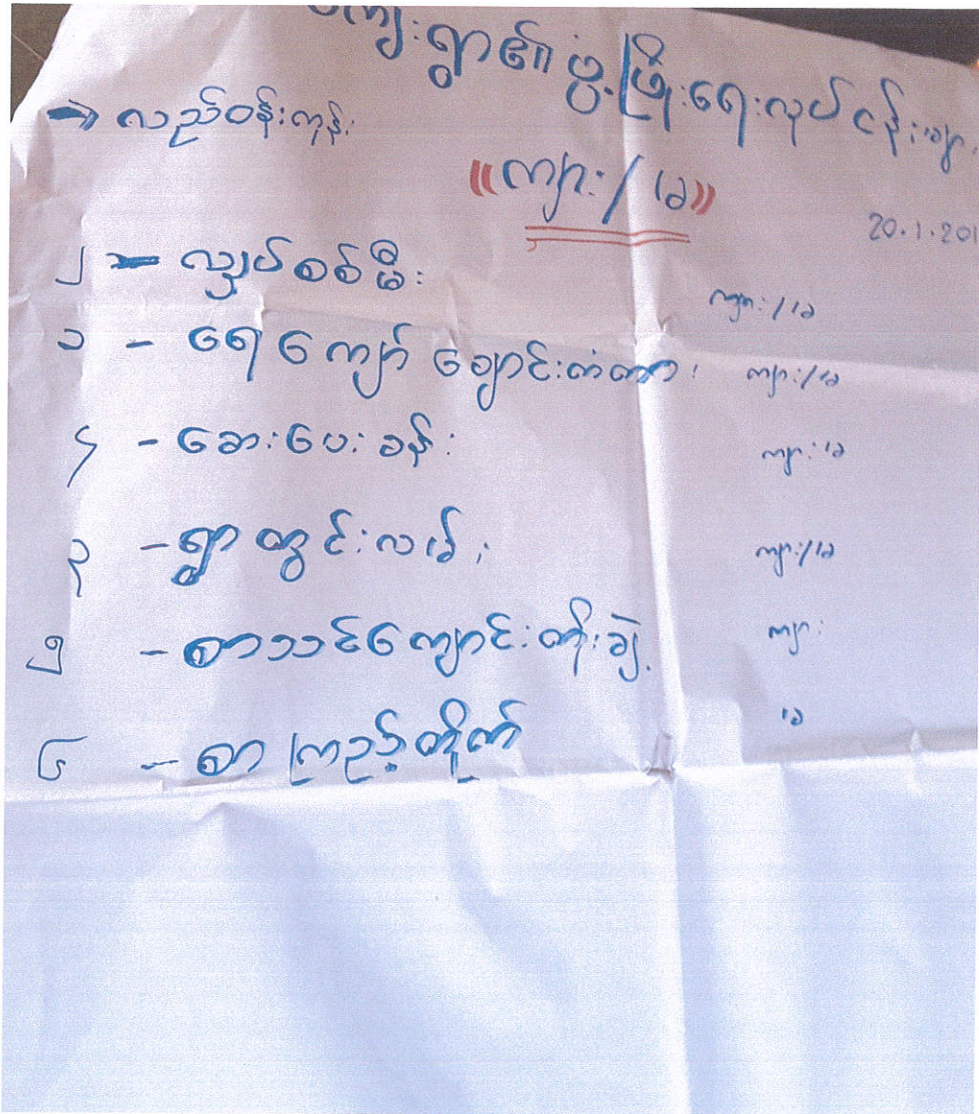 ကျေးရွာ၏ ဖွံ့ဖြိုးရေးလုပ်ငန်းများ
လည်ဝန်းကုန်း
"ကျား/မ"
20.1.201
၂ - လျှပ်စစ်မီး ကျား/မ
၁ - ရေကျော် ချောင်းတံတား ကျား/မ
၄ - ဆေးပေးခန်း ကျား/မ
၃ - ရွာတွင်းလမ်း ကျား/မ
၅ - စာသင်ကျောင်းတိုးချဲ့ ကျား
၆ - စာကြည့်တိုက် မ